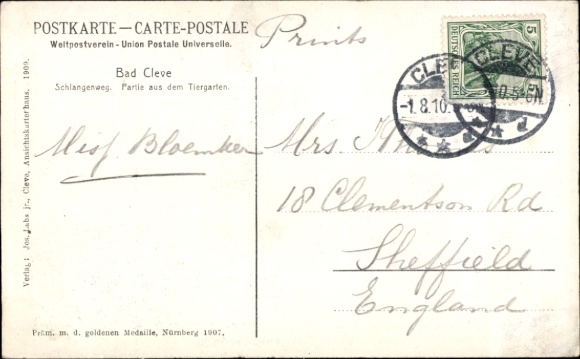 POSTKARTE — CARTE-POSTALE
Weltpostverein - Union Postale Universelle.
Bad Cleve
Schlangenweg. Partie aus dem Tiergarten.
Prints
5
DEUTSCHES REICH
CLEVE
-1.8.10.
d
CLEVE
d
Miss Bloemker
Mrs
18 Clementson Rd
Sheffield
England
Verlag: Jos. Labs jr., Cleve, Ansichtskartenhaus. 1909.
Präm. m. d. goldenen Medaille, Nürnberg 1907.